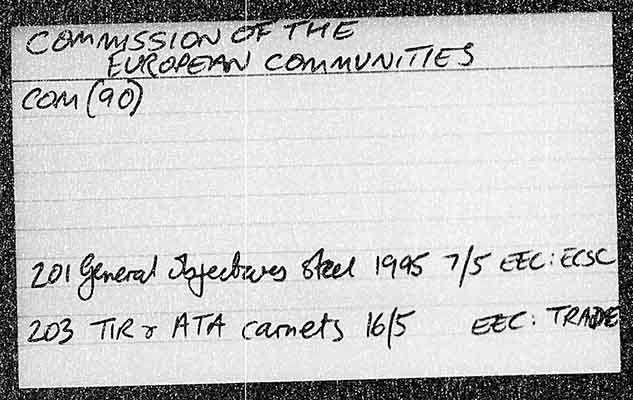 COMMISSION OF THE
EUROPEAN COMMUNITIES
COM (90)
201 General Objectives Steel 1995 7/5 EEC: ECSC
203 TIR & ATA carnets 16/5 EEC: TRADE